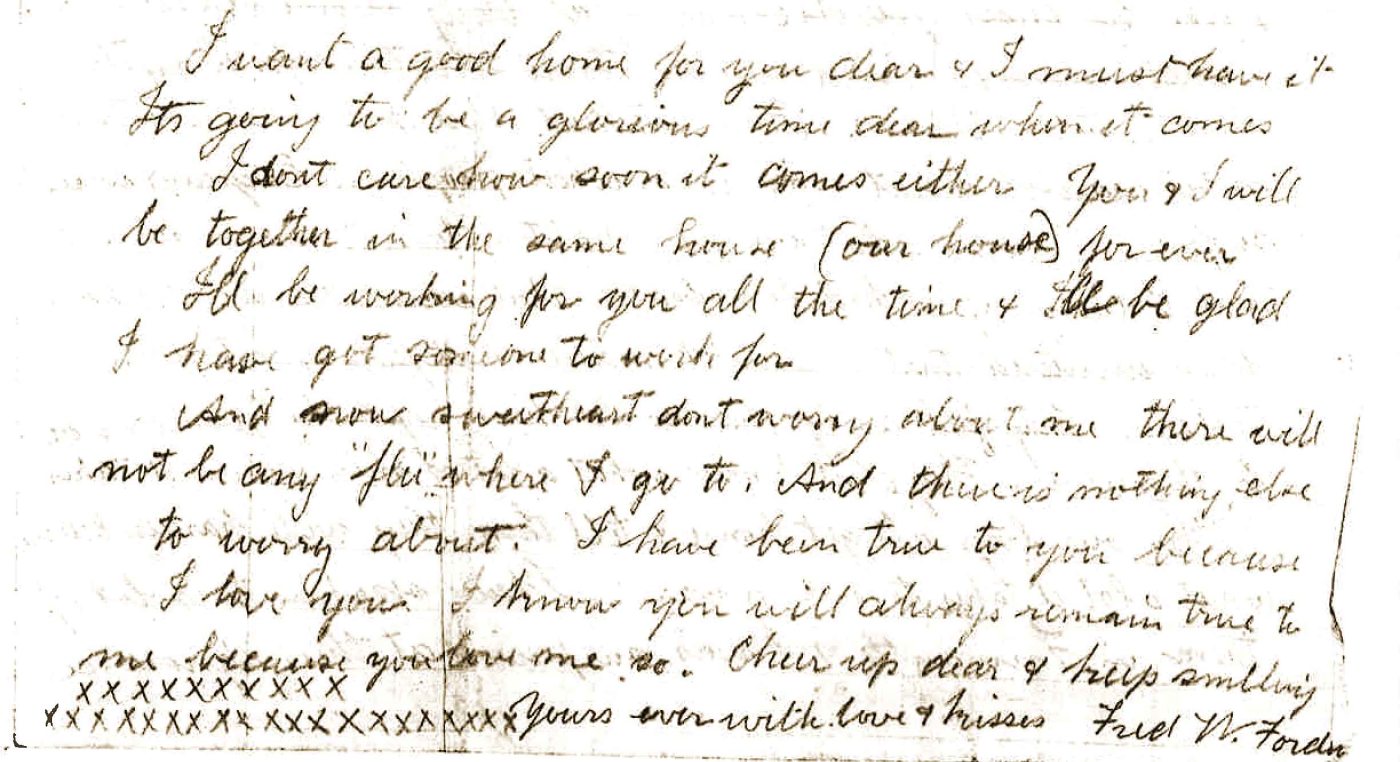 I want a good home for you dear & I must have it
Its going to be a glorious time dear when it comes
I dont care how soon it comes either You & I will
be together in the same house (our house) for ever
I'll be working for you all the time & I'll be glad
I have got someone to work for
And now sweetheart dont worry about me there will
not be any "flu" where I go to. And there is nothing else
to worry about. I have been true to you because
I love you. I know you will always remain true to
me because you love me so. Cheer up dear & keep smiling
x x x x x x x x x x
x x x x x x x x x x x x x x x x x x x x Yours ever with love & kisses Fred W.